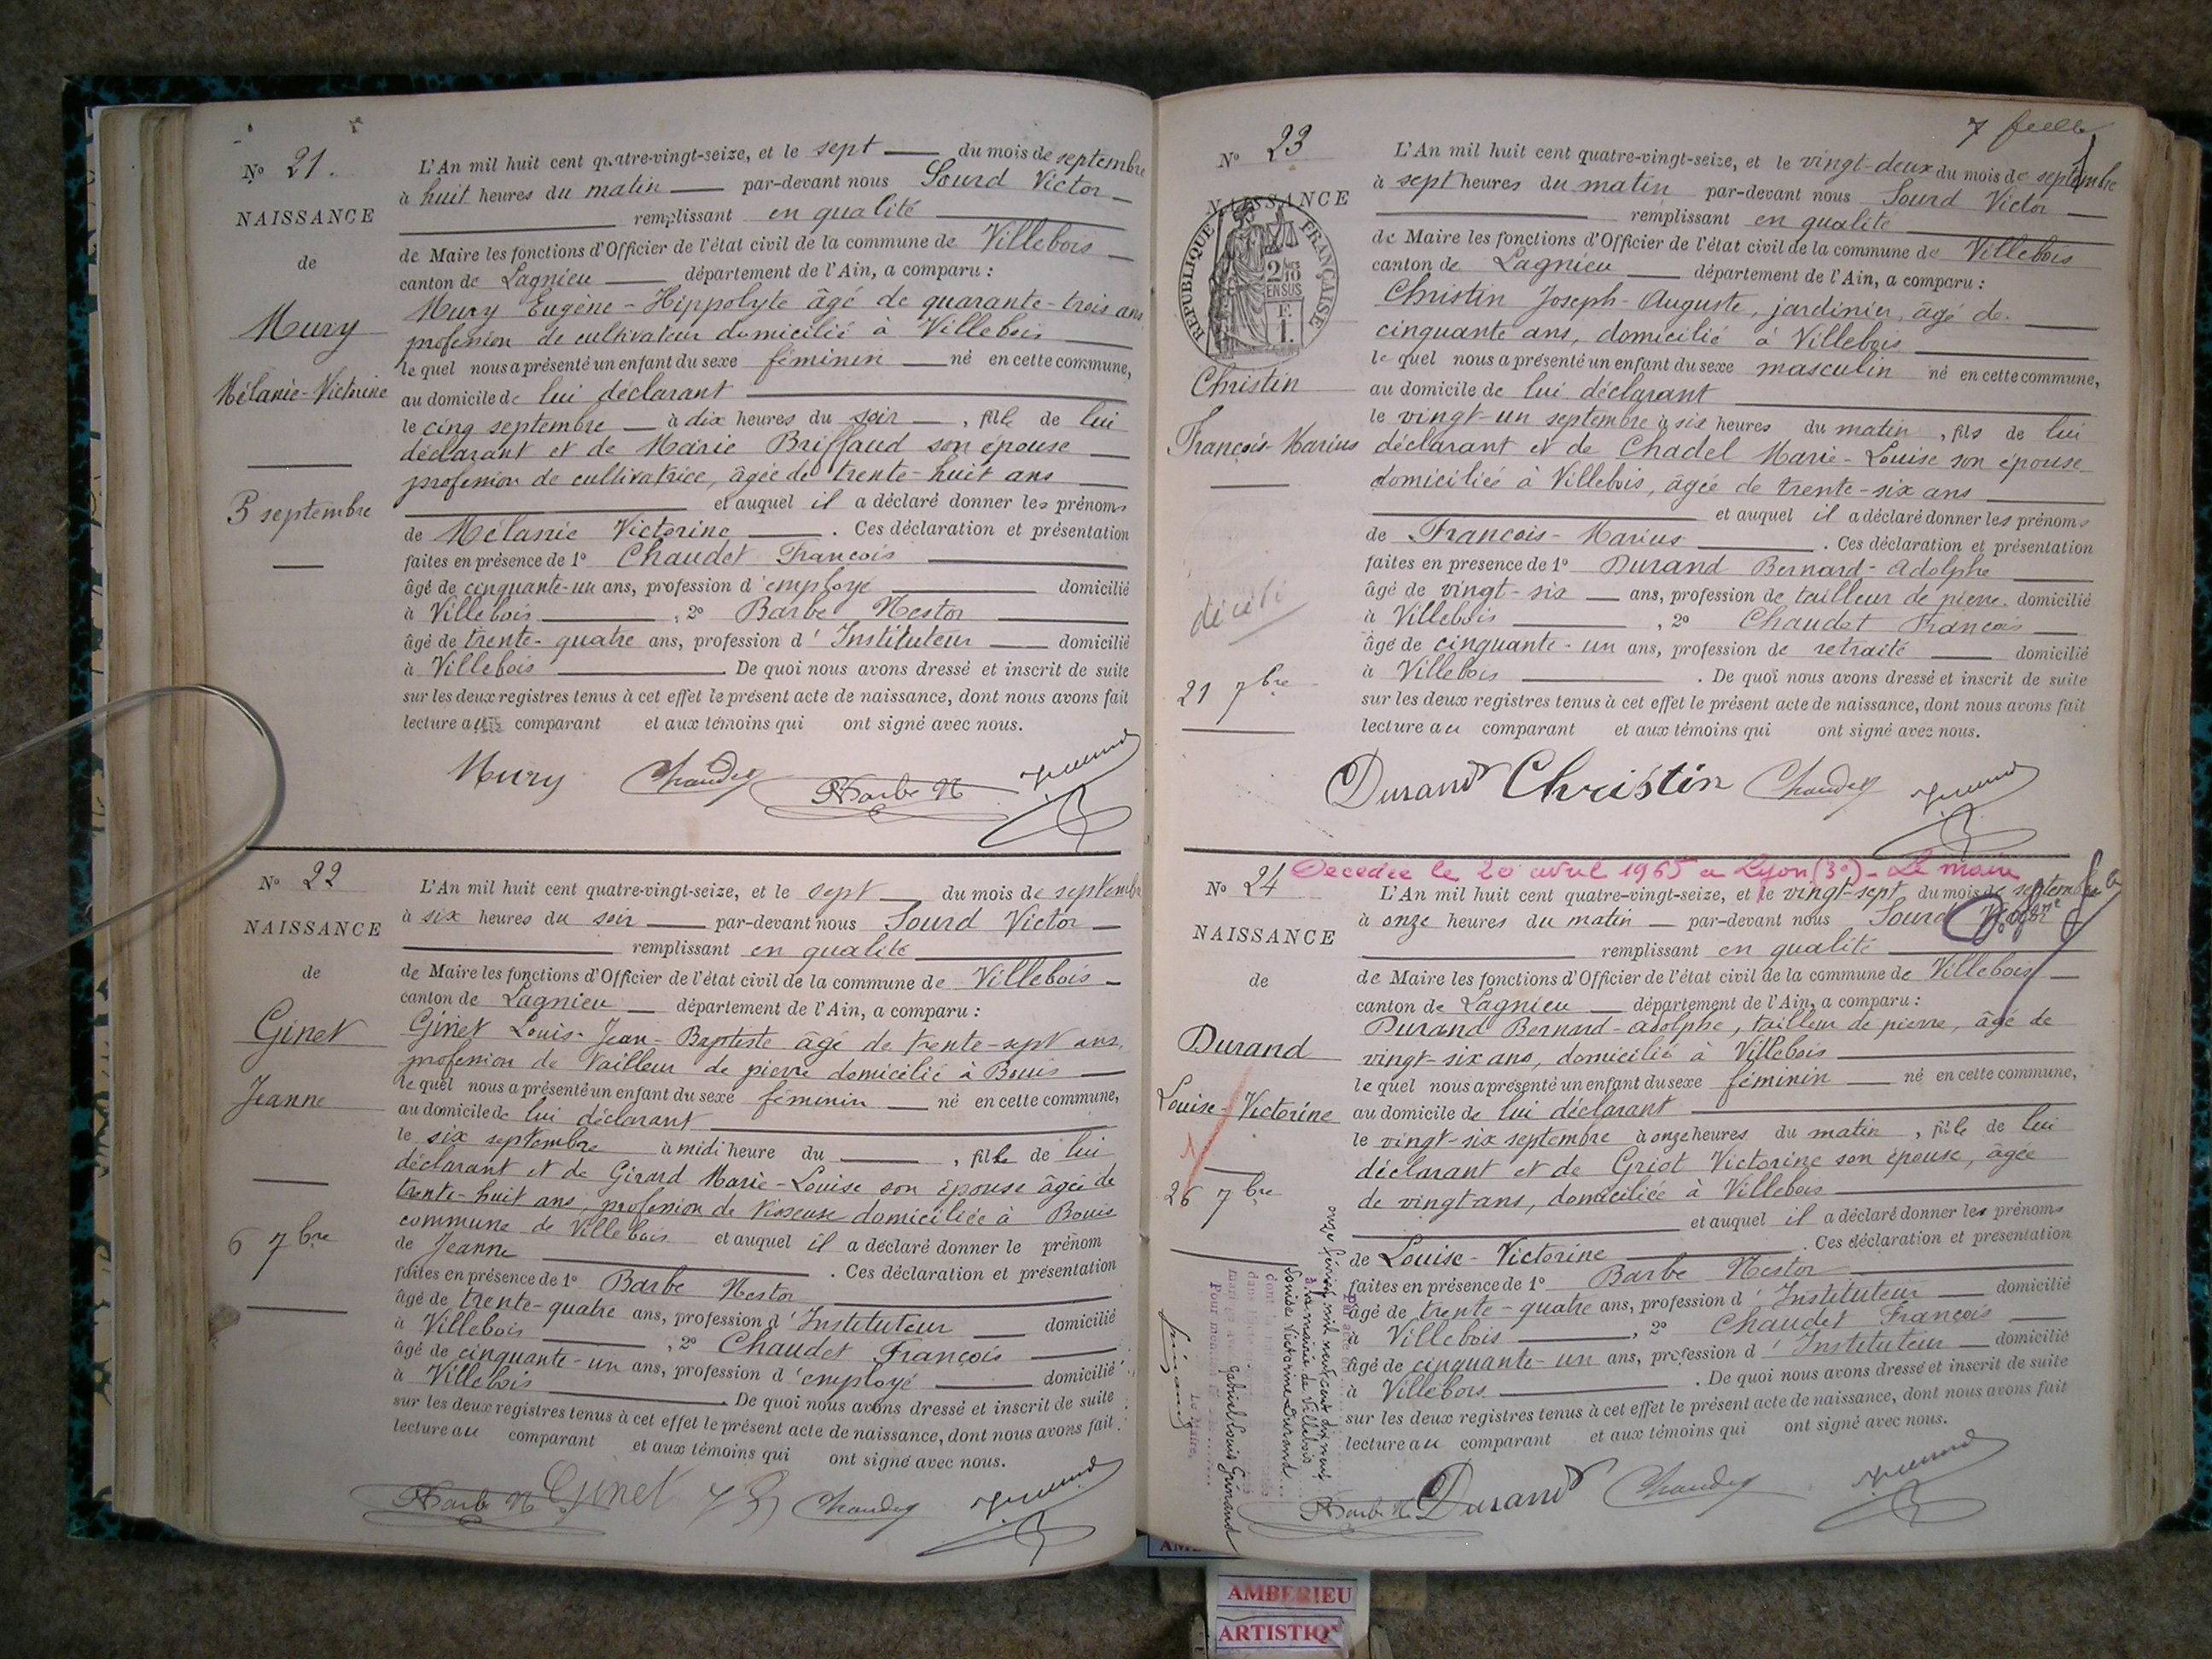 N° 21.
NAISSANCE
de
Mury
Mélanie-Victorine
5 septembre
L'An mil huit cent quatre-vingt-seize, et le sept du mois de septembre
à huit heures du matin par-devant nous Sourd Victor
remplissant en qualité
de Maire les fonctions d'Officier de l'état civil de la commune de Villebois
canton de Lagnieu département de l'Ain, a comparu :
Mury Eugène-Hippolyte âgé de quarante-trois ans
profession de cultivateur domicilié à Villebois
le quel nous a présenté un enfant du sexe féminin né en cette commune,
au domicile de lui déclarant
le cinq septembre à dix heures du soir, fille de lui
déclarant et de Marie Briffaud son épouse
profession de cultivatrice, âgée de trente-huit ans
et auquel il a déclaré donner les prénoms
de Mélanie Victorine. Ces déclaration et présentation
faites en présence de 1° Chaudet François
âgé de cinquante-un ans, profession d'employé domicilié
à Villebois, 2° Barbe Nestor
âgé de trente-quatre ans, profession d'Instituteur domicilié
à Villebois. De quoi nous avons dressé et inscrit de suite
sur les deux registres tenus à cet effet le présent acte de naissance, dont nous avons fait
lecture au comparant et aux témoins qui ont signé avec nous.
Mury Chaudet Barbe N
N° 22
NAISSANCE
de
Ginet
Jeanne
6 7bre
L'An mil huit cent quatre-vingt-seize, et le sept du mois de septembre
à six heures du soir par-devant nous Sourd Victor
remplissant en qualité
de Maire les fonctions d'Officier de l'état civil de la commune de Villebois
canton de Lagnieu département de l'Ain, a comparu :
Ginet Louis-Jean-Baptiste âgé de trente-sept ans,
profession de tailleur de pierre domicilié à Bouis
le quel nous a présenté un enfant du sexe féminin né en cette commune,
au domicile de lui déclarant
le six septembre à midi heure du, fille de lui
déclarant et de Girard Marie-Louise son épouse âgée de
trente-huit ans, profession de domiciliée à Bouis
commune de Villebois et auquel il a déclaré donner le prénom
de Jeanne. Ces déclaration et présentation
faites en présence de 1° Barbe Nestor
âgé de trente-quatre ans, profession d'Instituteur domicilié
à Villebois, 2° Chaudet François
âgé de cinquante-un ans, profession d'employé domicilié
à Villebois. De quoi nous avons dressé et inscrit de suite
sur les deux registres tenus à cet effet le présent acte de naissance, dont nous avons fait
lecture au comparant et aux témoins qui ont signé avec nous.
Barbe N Ginet Chaudet
7
N° 23
NAISSANCE
RÉPUBLIQUE FRANÇAISE
2/10
EN SUS
F.
1.
Christin
François-Marius
décédé
21 7bre
L'An mil huit cent quatre-vingt-seize, et le vingt-deux du mois de septembre
à sept heures du matin par-devant nous Sourd Victor
remplissant en qualité
de Maire les fonctions d'Officier de l'état civil de la commune de Villebois
canton de Lagnieu département de l'Ain, a comparu :
Christin Joseph-Auguste, jardinier, âgé de
cinquante ans, domicilié à Villebois
le quel nous a présenté un enfant du sexe masculin né en cette commune,
au domicile de lui déclarant
le vingt-un septembre à six heures du matin, fils de lui
déclarant et de Chadel Marie-Louise son épouse
domiciliée à Villebois, âgée de trente-six ans
et auquel il a déclaré donner les prénoms
de François-Marius. Ces déclaration et présentation
faites en présence de 1° Durand Bernard-Adolphe
âgé de vingt-six ans, profession de tailleur de pierre domicilié
à Villebois, 2° Chaudet François
âgé de cinquante-un ans, profession de retraité domicilié
à Villebois. De quoi nous avons dressé et inscrit de suite
sur les deux registres tenus à cet effet le présent acte de naissance, dont nous avons fait
lecture au comparant et aux témoins qui ont signé avec nous.
Durand Christin Chaudet
Décédée le 20 avril 1965 à Lyon (3e) - Le maire
N° 24
NAISSANCE
de
Durand
Louise-Victorine
26 7bre
L'An mil huit cent quatre-vingt-seize, et le vingt-sept du mois de septembre
à onze heures du matin par-devant nous Sourd
remplissant en qualité
de Maire les fonctions d'Officier de l'état civil de la commune de Villebois
canton de Lagnieu département de l'Ain, a comparu :
Durand Bernard-Adolphe, tailleur de pierre, âgé de
vingt-six ans, domicilié à Villebois
le quel nous a présenté un enfant du sexe féminin né en cette commune,
au domicile de lui déclarant
le vingt-six septembre à onze heures du matin, fille de lui
déclarant et de Griot Victorine son épouse, âgée
de vingt ans, domiciliée à Villebois
et auquel il a déclaré donner les prénoms
de Louise-Victorine. Ces déclaration et présentation
faites en présence de 1° Barbe Nestor
âgé de trente-quatre ans, profession d'Instituteur domicilié
à Villebois, 2° Chaudet François
âgé de cinquante-un ans, profession d'Instituteur domicilié
à Villebois. De quoi nous avons dressé et inscrit de suite
sur les deux registres tenus à cet effet le présent acte de naissance, dont nous avons fait
lecture au comparant et aux témoins qui ont signé avec nous.
Barbe N. Durand Chaudet
onze février mil neuf cent dix neuf
à la mairie de Villebois
Louise Victorine Durand
Gabriel Louis
Le Maire,
AMBERIEU
ARTISTIQ